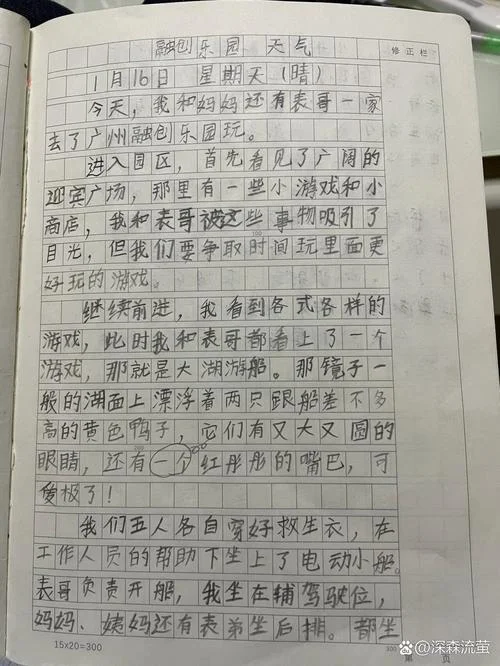 融创乐园 天气
修正栏
1月16日 星期天(晴)
今天,我和妈妈还有表哥一家
去了广州融创乐园玩。
进入园区,首先看见了广阔的
迎宾广场,那里有一些小游戏和小
商店,我和表哥被这些事物吸引了
目光,但我们要争取时间玩里面更
100
好玩的游戏。
继续前进,我看到各式各样的
游戏,此时我和表哥都看上了一个
游戏,那就是大湖游船。那镜子一
般的湖面上漂浮着两只跟船差不多
高的黄色鸭子,它们有又大又圆的
眼睛,还有一个红彤彤的嘴巴,可
爱极了!
我们五人各自穿好救生衣,在
工作人员的帮助下坐上了电动小船。
表哥负责开船,我坐在辅驾驶位,
妈妈、姨妈还有表弟坐后排。都坐
15×20=300
300
第 页
@深森流萤